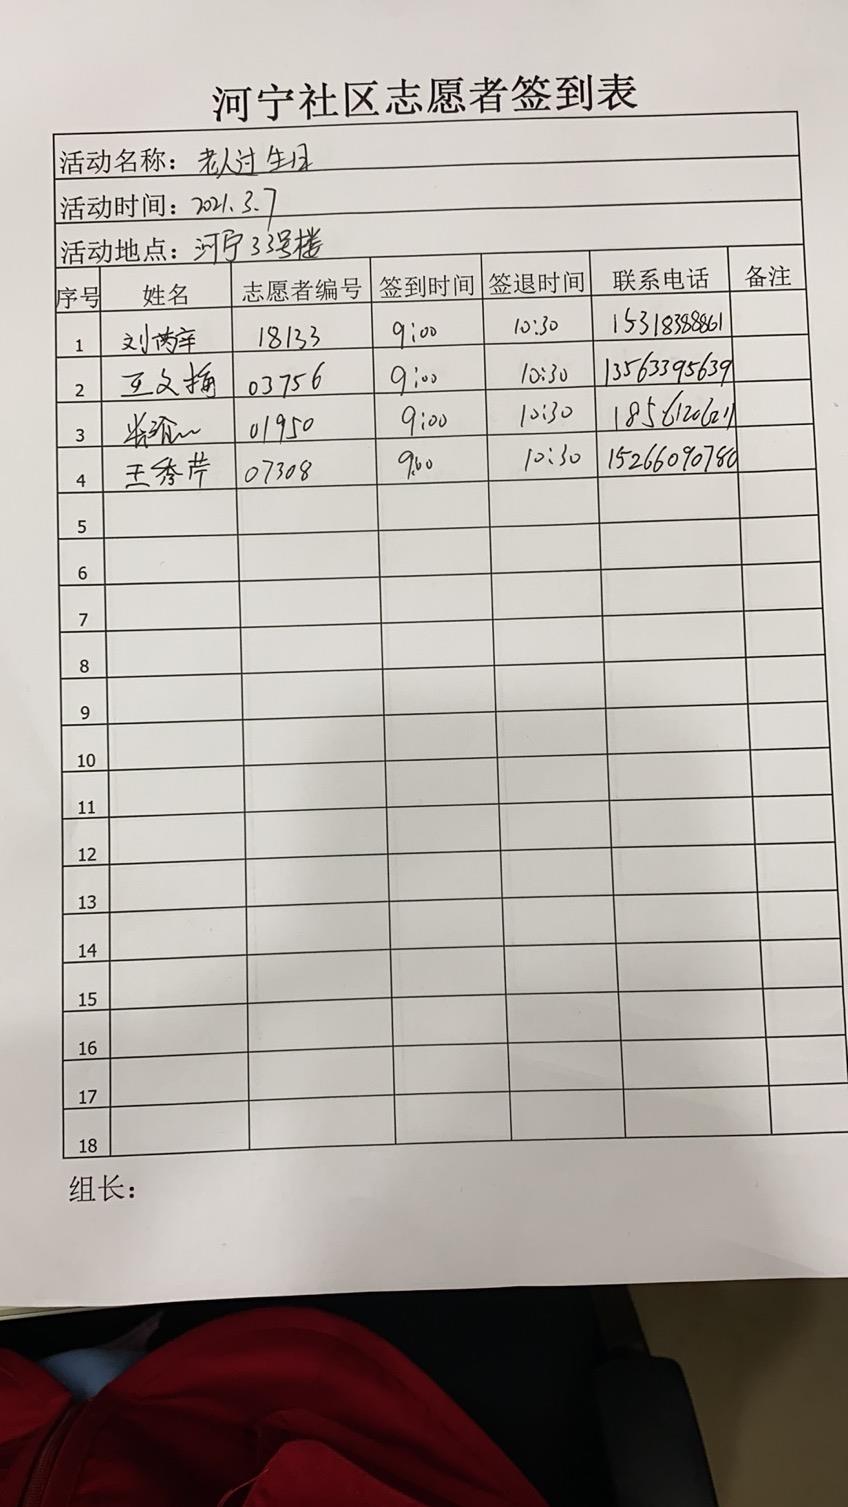 河宁社区志愿者签到表
活动名称：老人过生日
活动时间：2021.3.7
活动地点：河宁33号楼
序号 姓名 志愿者编号 签到时间 签退时间 联系电话 备注
1 刘 18133 9:00 10:30 15318388861
2 王文梅 03756 9:00 10:30 13563395639
3 01950 9:00 10:30
4 王秀芹 07308 9:00 10:30 15266090780
5
6
7
8
9
10
11
12
13
14
15
16
17
18
组长：